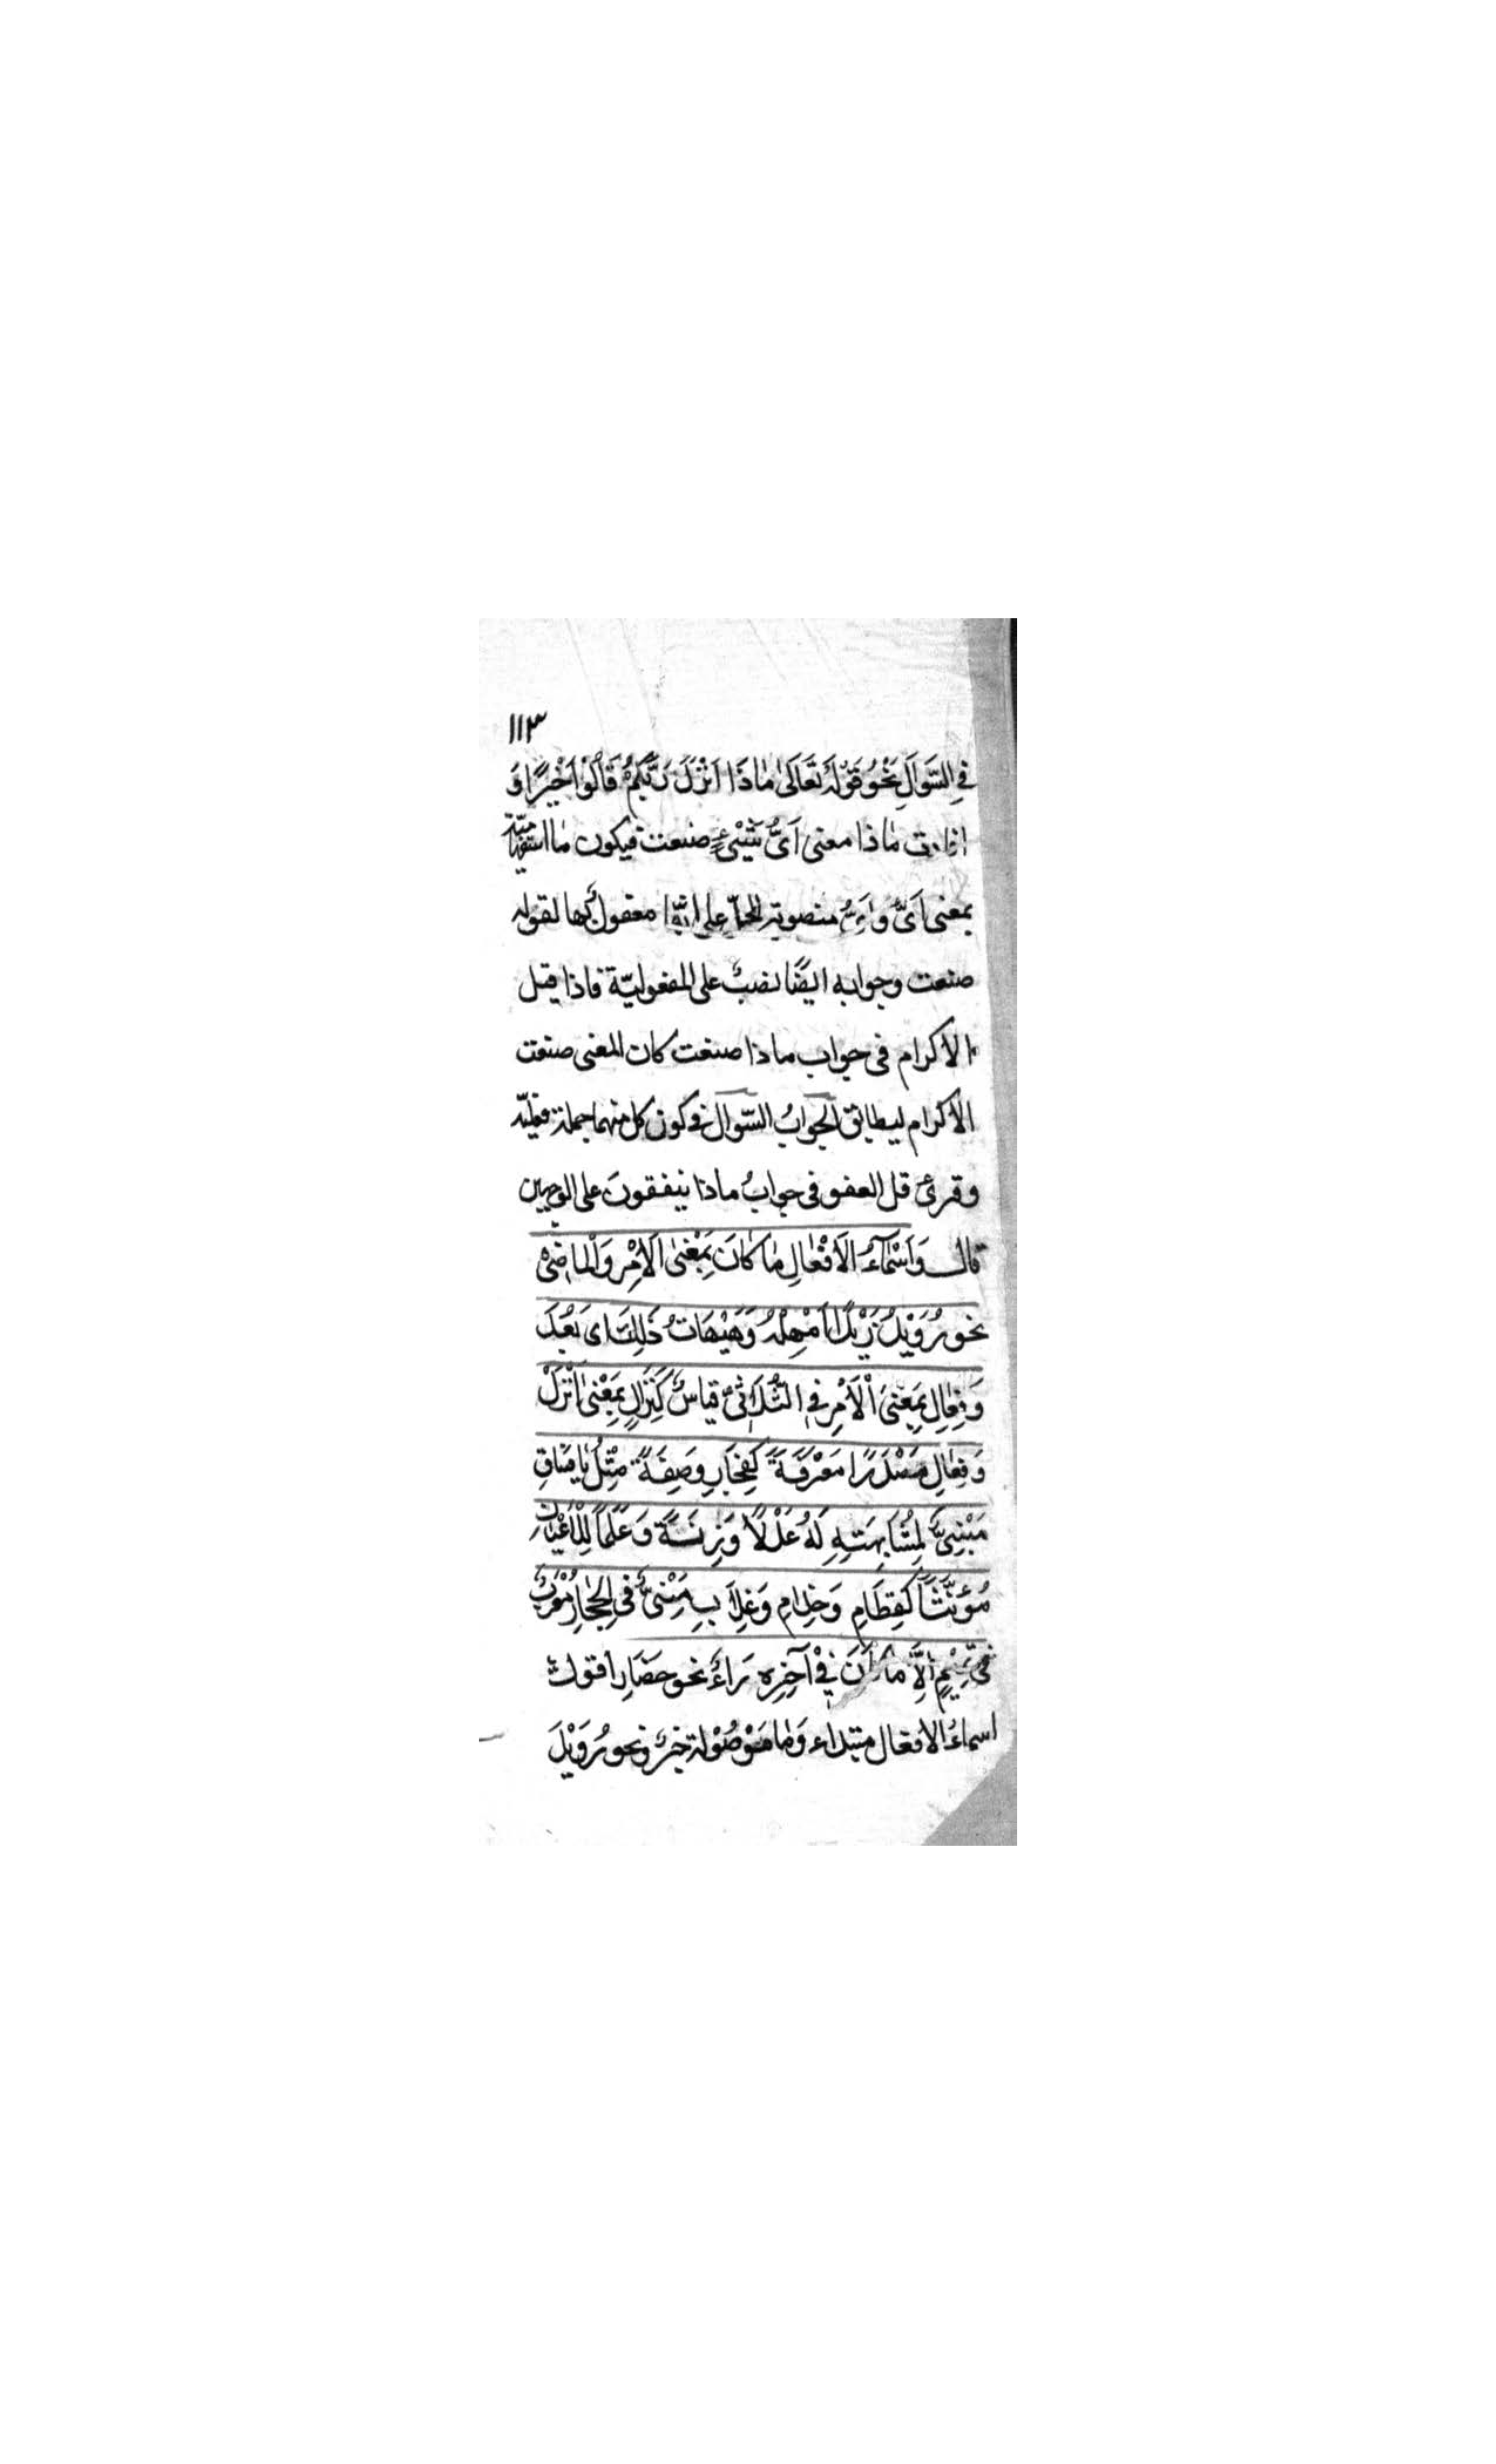 ١١٣
فِي السَّوَالِ نَحْوُ قَوْلِهِ تَعَالَى مَاذَا اَنْزَلَ رَبُّكُمْ قَالُوْا خَيْرًا وَ
ماذا معنى اَيُّ شَيْءٍ صنعت فيكون ما استفهاميّة
بمعنى اَيّ وَاَيُّ منصوبة المحلّ على انّها مفعول بها لقوله
صنعت وجوابه ايضًا نصبٌ على المفعوليّة فاذا قيل
الاكرام فى جواب ماذا صنعت كان المعنى صنعت
الاكرام ليطابق الجوابُ السّوال فى كون كل منهما جملة فعليّة
وقرئ قل العفو فى جوابُ ماذا ينفقونَ على الوجهين
قال وَاَسْمَآءُ الْاَفْعَالِ مَا كَانَ بِمَعْنَى الْاَمْرِ وَالْمَاضِىْ
نحو رُوَيْدَ زَيْدًا اَمْهِلْهُ وَهَيْهَاتُ ذَلِكَ اى بَعُدَ
وَفِعَالِ بِمَعْنَى الْاَمْرِ فِى الثُّلَاثِىِّ قِيَاسٌ كَنِزَالِ بِمَعْنَى اِنْزِلْ
وَفِعَالِ مَصْدَرًا مَعْرِفَةً كَفِجَارِ وَصِفَةً مِثْلُ يَا فَسَاقِ
مَبْنِىٌّ لِمُشَابَهَتِهِ لَهُ عَدْلًا وَزِنَةً وَعَلَمًا لِلْاَعْيَانِ
مُؤَنَّثًا كَقِطَامِ وَغِلَابِ مَبْنِىٌّ فِى الْحِجَازِ مُعْرَبٌ
فِىْ تَمِيْمٍ اِلَّا مَا كَانَ فِىْ آخِرِهِ رَاءٌ نحو حَضَارِ اقول
اسماءُ الافعال مبتداء وَمَا مَوْصُوْلة خبرٌ ونحو رُوَيْدَ